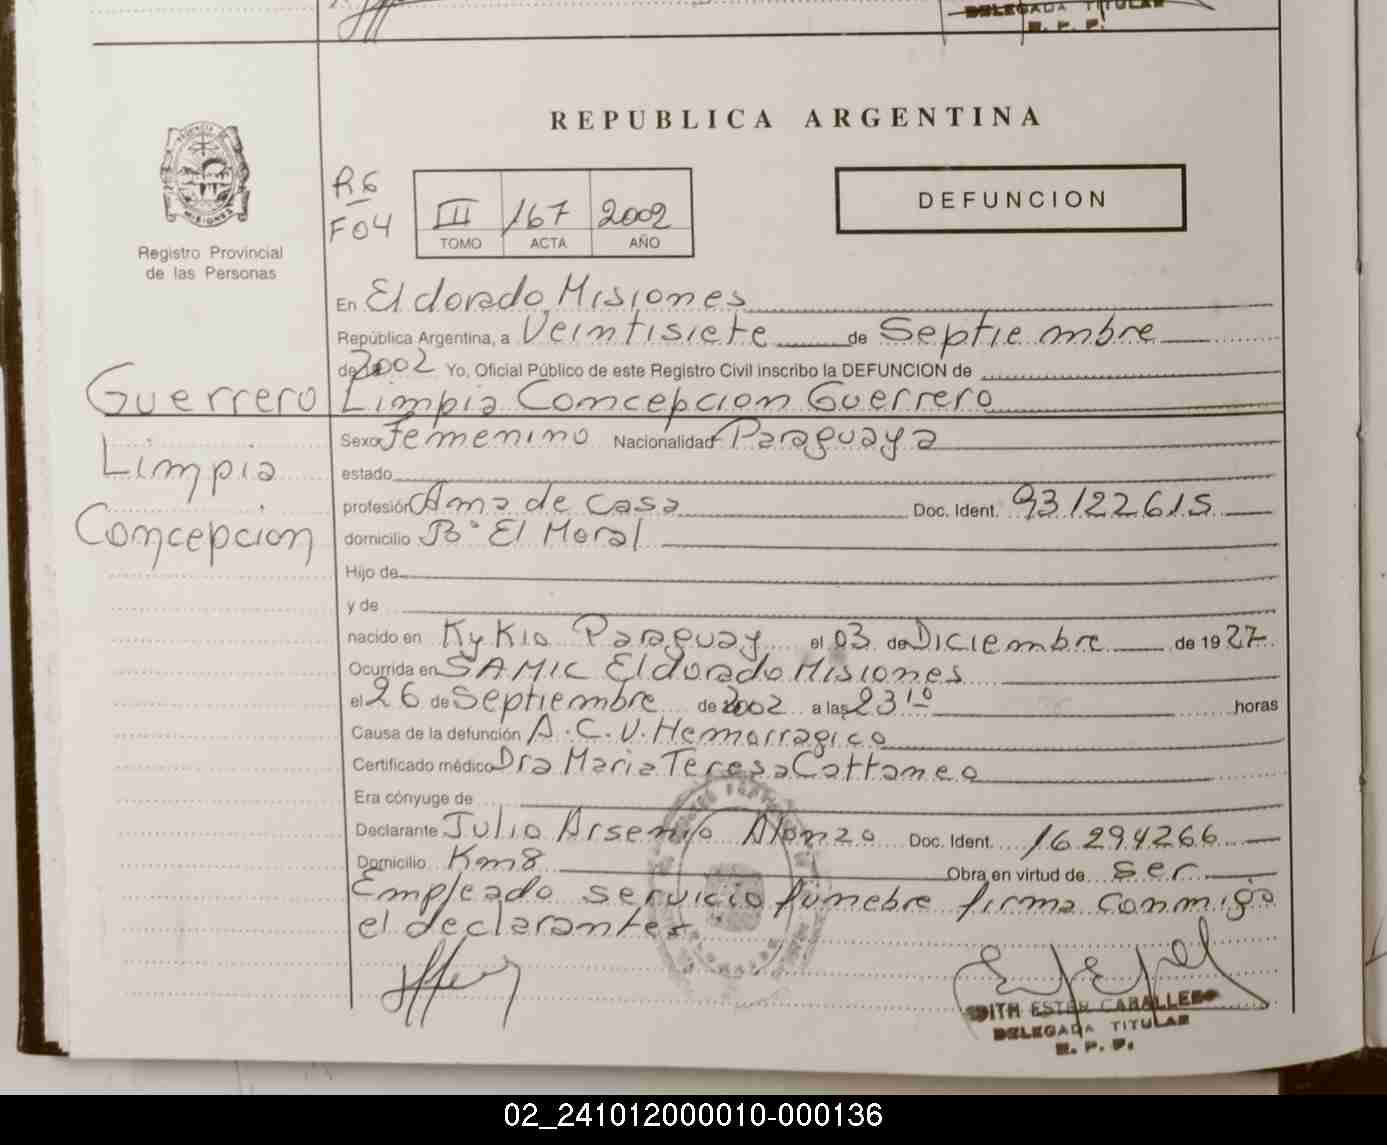 DELEGADA TITULAR
R. P. P.
REPUBLICA ARGENTINA
MISIONES
Registro Provincial
de las Personas
R6
F04
III 167 2002
TOMO ACTA AÑO
DEFUNCION
En Eldorado Misiones
República Argentina, a Veintisiete de Septiembre
de 2002 Yo, Oficial Público de este Registro Civil inscribo la DEFUNCION de
Guerrero Limpia Concepcion Guerrero
Sexo Femenino Nacionalidad Paraguaya
Limpia
estado
profesión Ama de casa Doc. Ident. 93122615
Concepcion
domicilio B° El Moral
Hijo de
y de
nacido en KyKio Paraguay el 03 de Diciembre de 1927
Ocurrida en SAMIC Eldorado Misiones
el 26 de Septiembre de 2002 a las 23 10 horas
Causa de la defunción A.C.V. Hemorragico
Certificado médico Dra Maria Teresa Cattaneo
Era cónyuge de
Declarante Julio Arsenio Alonzo Doc. Ident. 16.294266
Domicilio Km8 Obra en virtud de ser
Empleado servicio funebre firma conmigo
el declarante
EDITH ESTER CABALLERO
DELEGADA TITULAR
R. P. P.
02_241012000010-000136